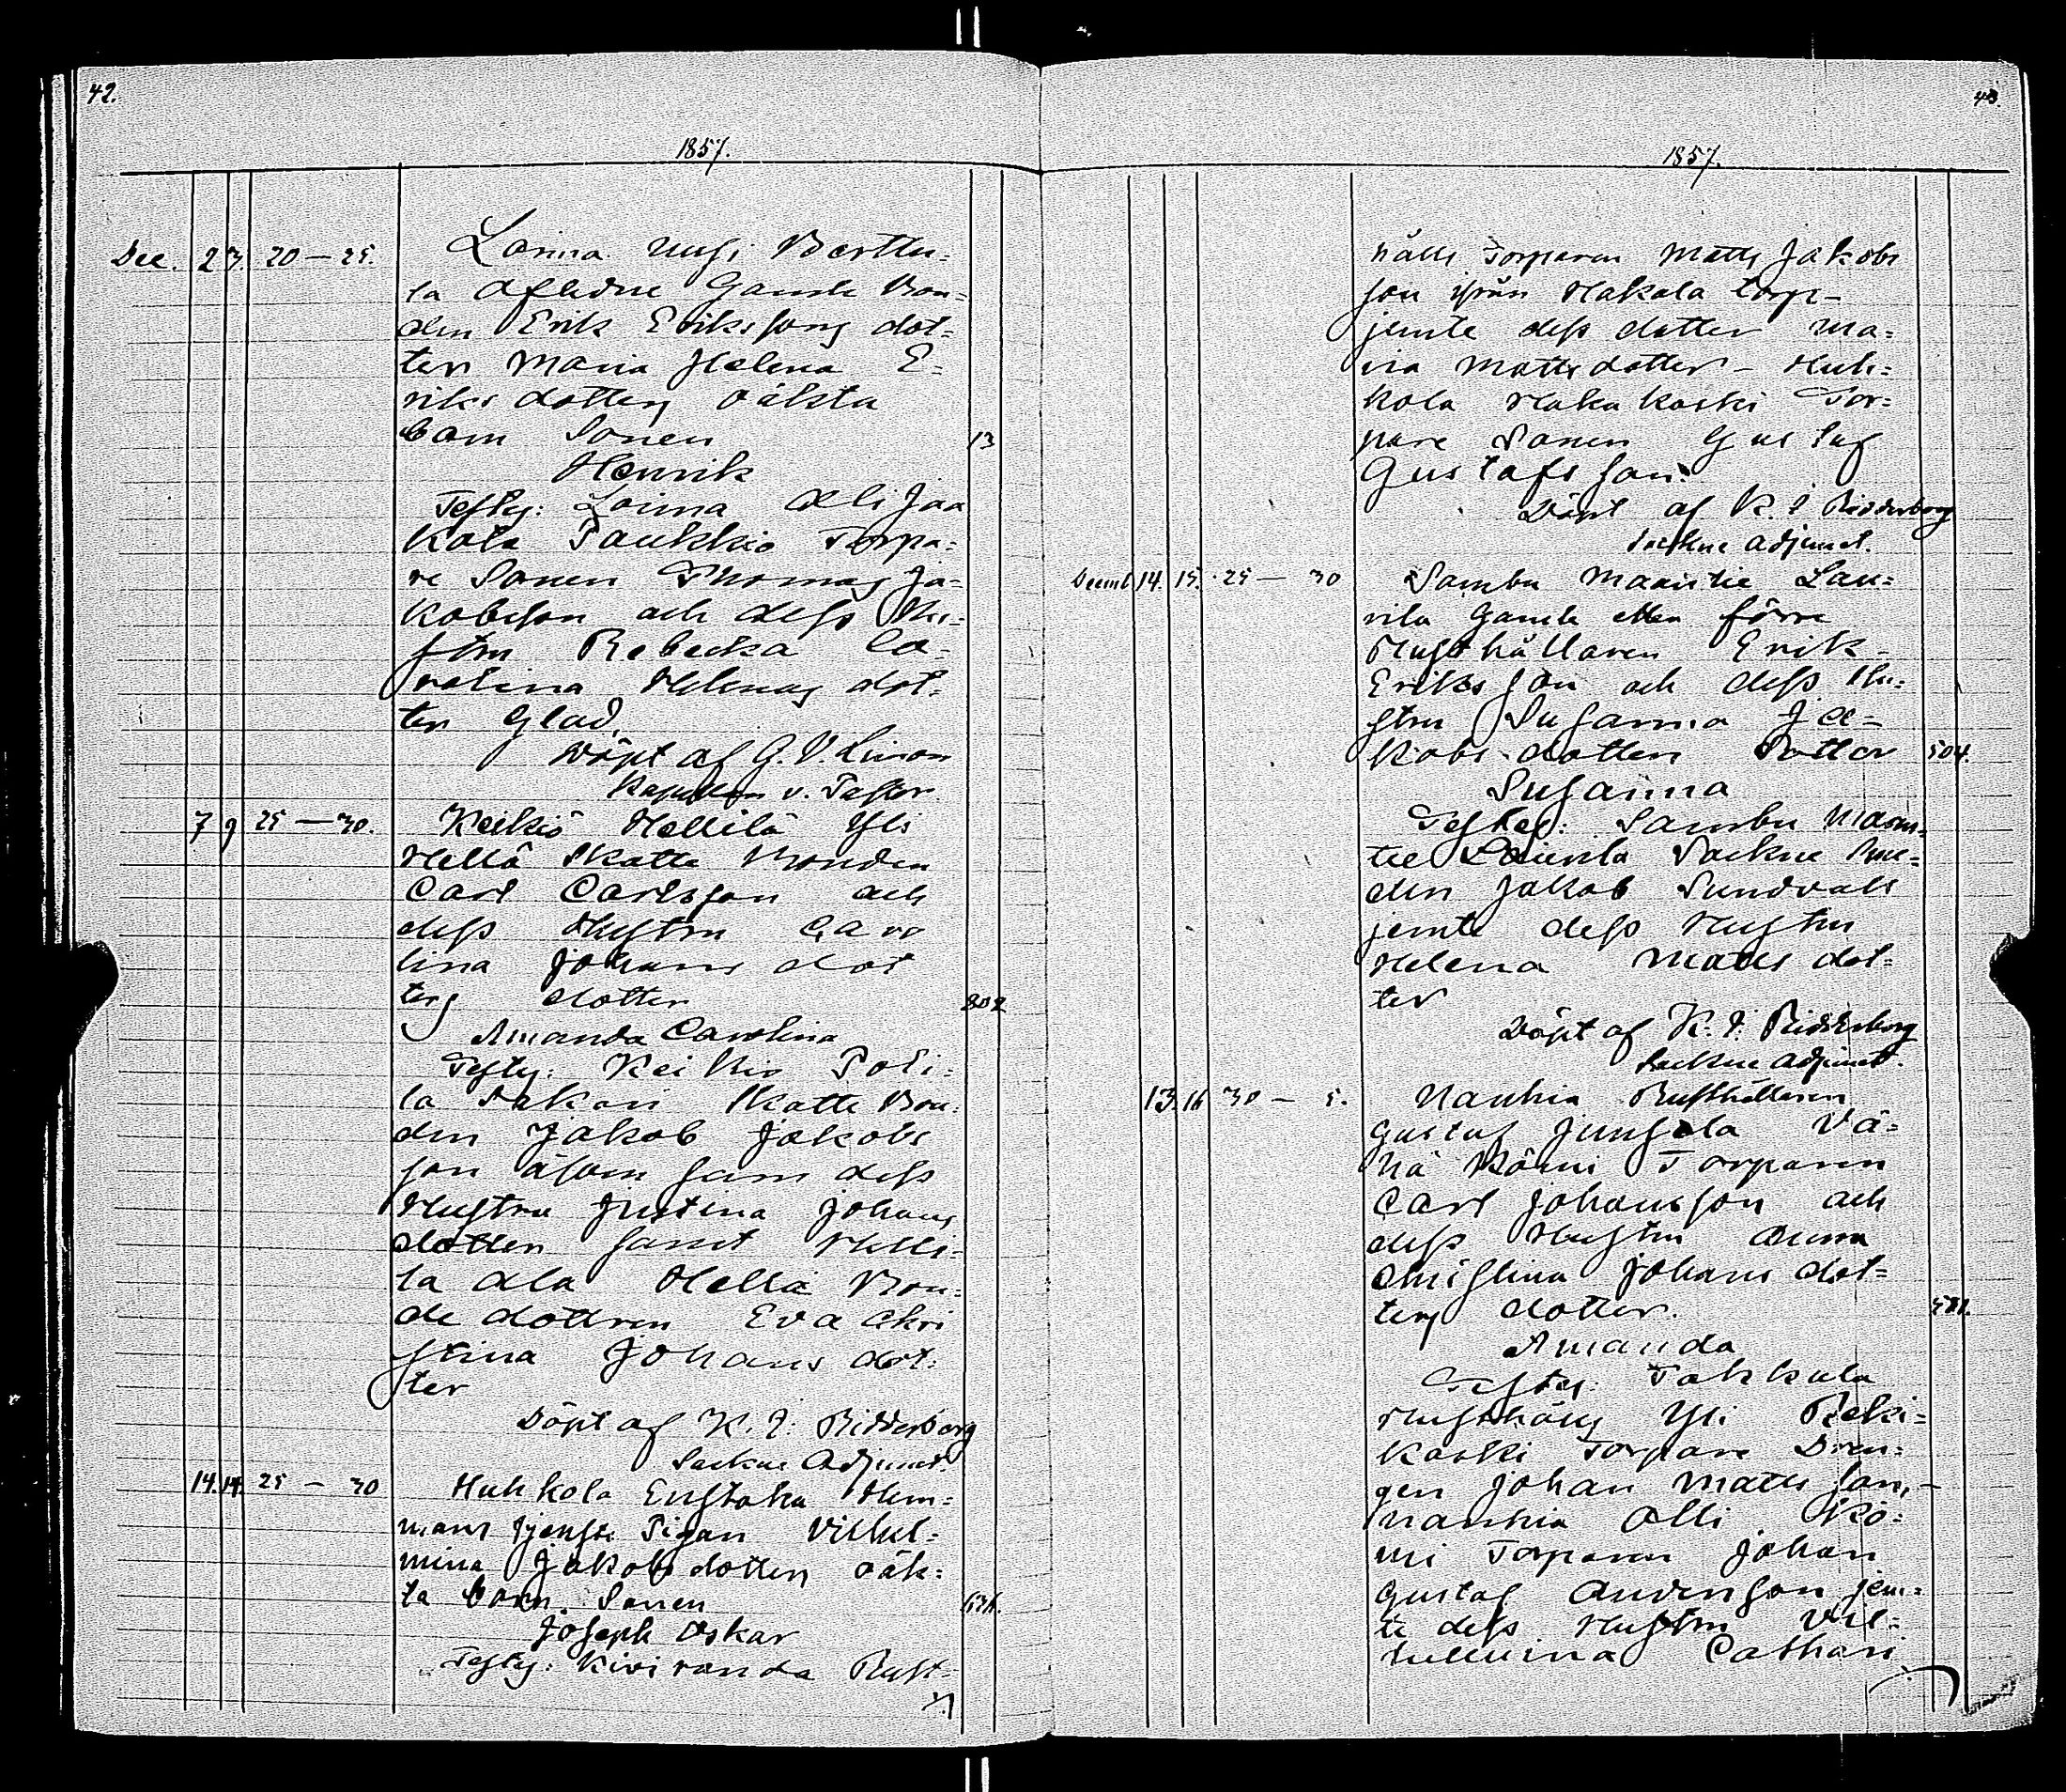 42.
1857.
Dec. 2 3. 20 — 25. Loima Uusi Perttu=
la Aflidne Gamle Bon=
den Erik Erikssons dot=
ter Maria Helena E=
riks dotters oäkta
barn Sonen 13
Henrik
Testes: Loima Ali Jaa
kola Paukkio Torpa=
re Sonen Thomas Ja=
kobsson och dess Hu=
stru Rebecka Ca=
rolina Helenas dot=
ter Glad.
Döpt af G. V. Limon
Kapellan v. Pastor
7 9 25 — 30. Keikiö Hellilä Yli
Hellä Skatte Bonden
Carl Carlsson och
dess Hustru Caro
lina Johans dot
ters dotter 802
Amanda Carolina
Testes: Keikiö Poli=
la Sakari Skatte Bon=
den Jakob Jakobs
son äfven som dess
Hustru Justina Johans
dotter samt Helli=
lä Ala Hellä Bon=
de dottren Eva Chri
stina Johans dot=
ter
Döpt af K. F. Ridderborg
Sockne Adjunct.
14. 14. 25 — 30 Huhkola Eustola Hem=
mans tjenste Pigan Vilhel=
mina Jakobs dotters oäk=
ta barn. Sonen 636.
Joseph Oskar
Testes: Kiviranda Rust=
43.
1857.
hålls Torparen Matts Jakobs
son ifrån Hakala torp
jemte dess dotter Ma=
ria Matts dotter – Huh=
kola Haka Koski Tor=
pare Sonen Gustaf
Gustafsson.
Döpt af K. F. Ridderborg
Sockne Adjunct.
Decemb. 14. 15. 25 — 30 Sambu Maantie Lau=
rila Gamle eller förre
Rusthållaren Erik
Eriksson och dess Hu=
stru Susanna Ja=
kobs dotters Dotter 504.
Susanna
Testes: Sambu Maan=
tie Laurila Sockne Sme=
den Jakob Sundvall
jemte dess Hustru
Helena Matts dot=
ter
Döpt af K. F. Ridderborg
Sockne Adjunct.
13. 16 30 — 5. Mauhia Rusthållaren
Gustaf Junsola Vä=
hä Kömi Torparen
Carl Johansson och
dess Hustru Anna
Christina Johans dot=
ters dotter. 581.
Amanda
Testes: Takkula
Rusthålls Yli Reki=
koski Torpare Dren=
gen Johan Mattsson,
Mauhia Olli Kö=
mi Torparen Johan
Gustaf Andersson jem=
te dess Hustru Vil=
helmina Cathari